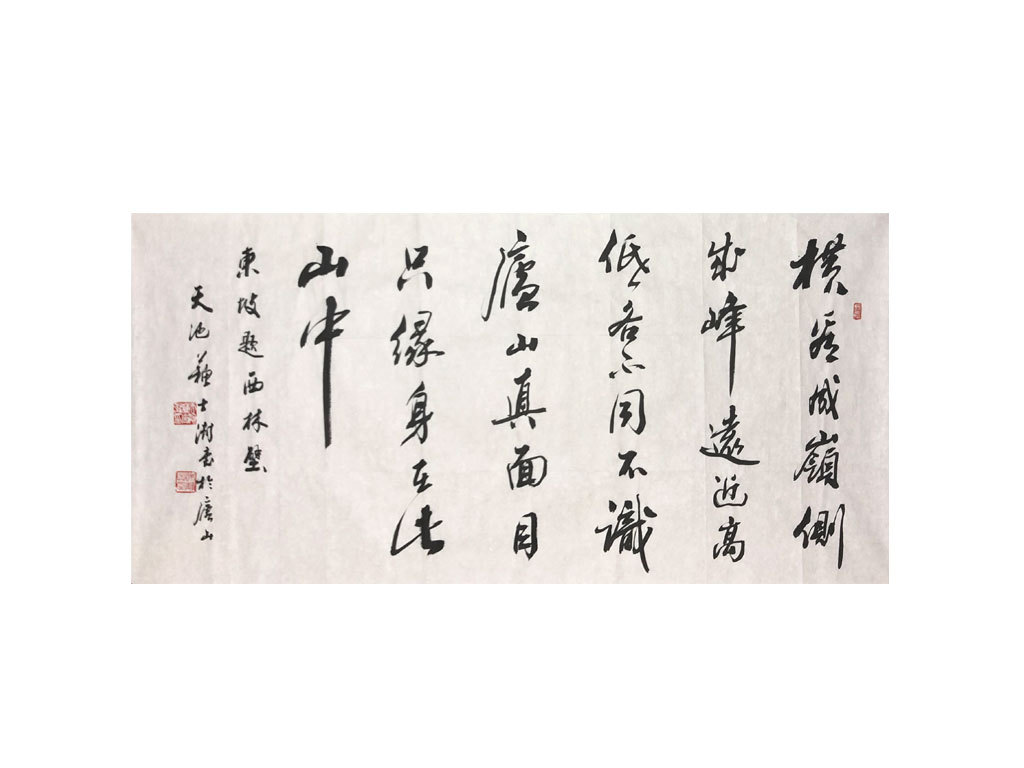 橫看成嶺側
成峰遠近高
低各不同不識
廬山真面目
只緣身在此
山中
東坡題西林壁
天池蘇士澍書於廬山